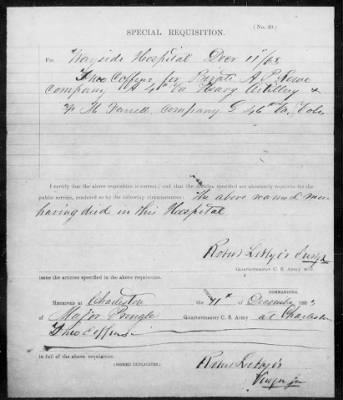 SPECIAL REQUISITION.
(No. 40.)
For Wayside Hospital Decr 11th/63
Two Coffins for Private A. P. Lowe
Company A 4th Va Heavy Artillery &
F. M. Farrell, Company G 46th Va. Vols
I certify that the above requisition is correct; and that the articles specified are absolutely requisite for the
public service, rendered so by the following circumstances: The above named men
having died in this Hospital
Robert Lebby Jr Surgn
Quartermaster C. S. Army
issue the articles specified in the above requisition.
COMMANDING.
Received at Charleston the 11th of December 1863,
of Major Pringle Quartermaster C. S. Army at Charleston
Two Coffins
in full of the above requisition.
(SIGNED DUPLICATES.)
Robert Lebby Jr
Surgn